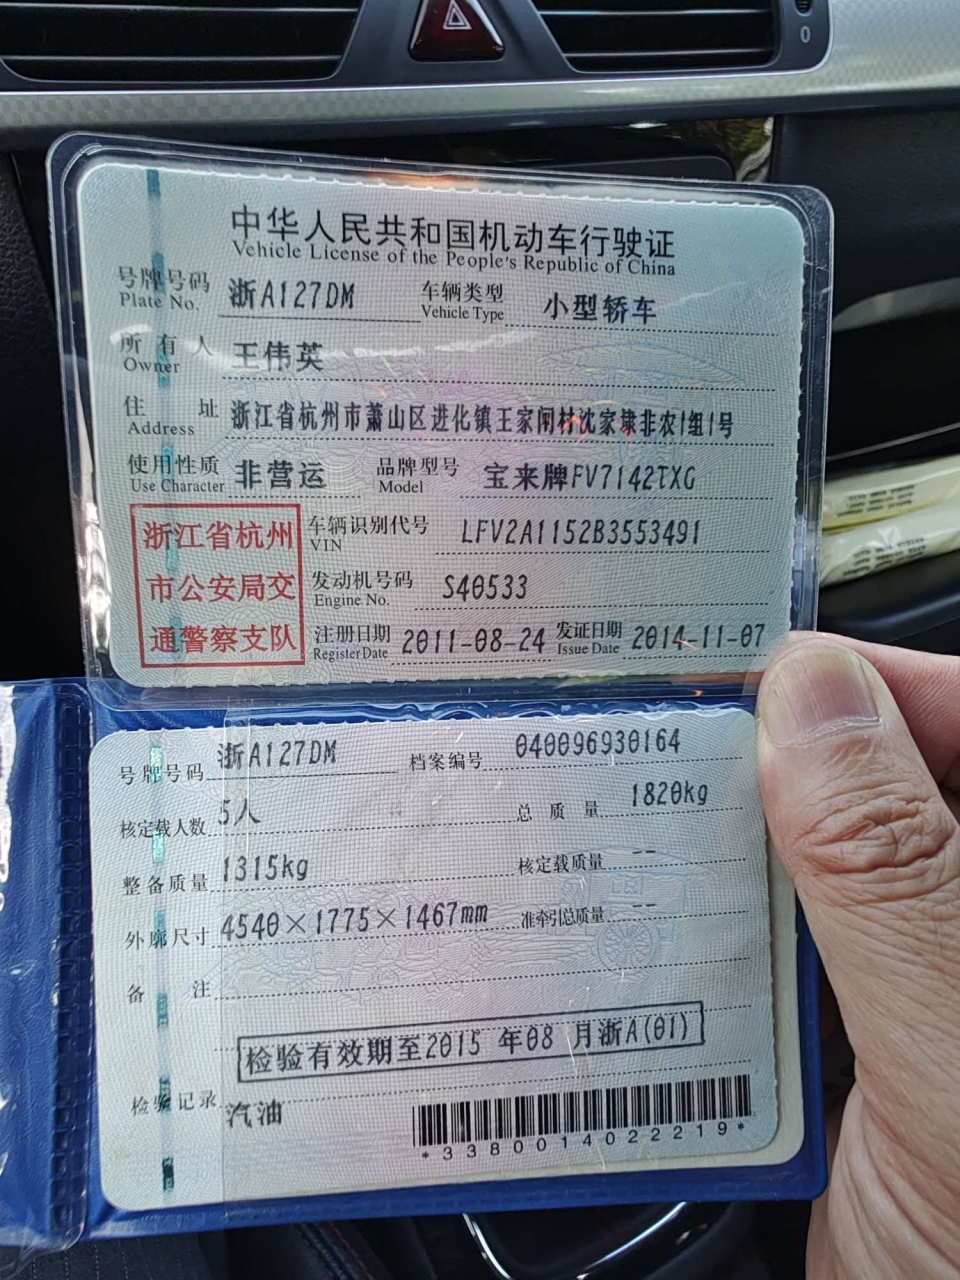 0
中华人民共和国机动车行驶证
Vehicle License of the People's Republic of China
号牌号码 浙A127DM 车辆类型 小型轿车
Plate No. Vehicle Type
所有人 王伟英
Owner
住址 浙江省杭州市萧山区进化镇王家闸村沈家埭非农1组1号
Address
使用性质 非营运 品牌型号 宝来牌FV7142TXG
Use Character Model
浙江省杭州
市公安局交
通警察支队
车辆识别代号 LFV2A1152B3553491
VIN
发动机号码 S40533
Engine No.
注册日期 2011-08-24 发证日期 2014-11-07
Register Date Issue Date
号牌号码 浙A127DM 档案编号 040096930164
核定载人数 5人 总质量 1820kg
整备质量 1315kg 核定载质量 --
外廓尺寸 4540×1775×1467mm 准牵引总质量 --
备注
检验有效期至2015 年08 月浙A(01)
检验记录 汽油
*3380014022219*